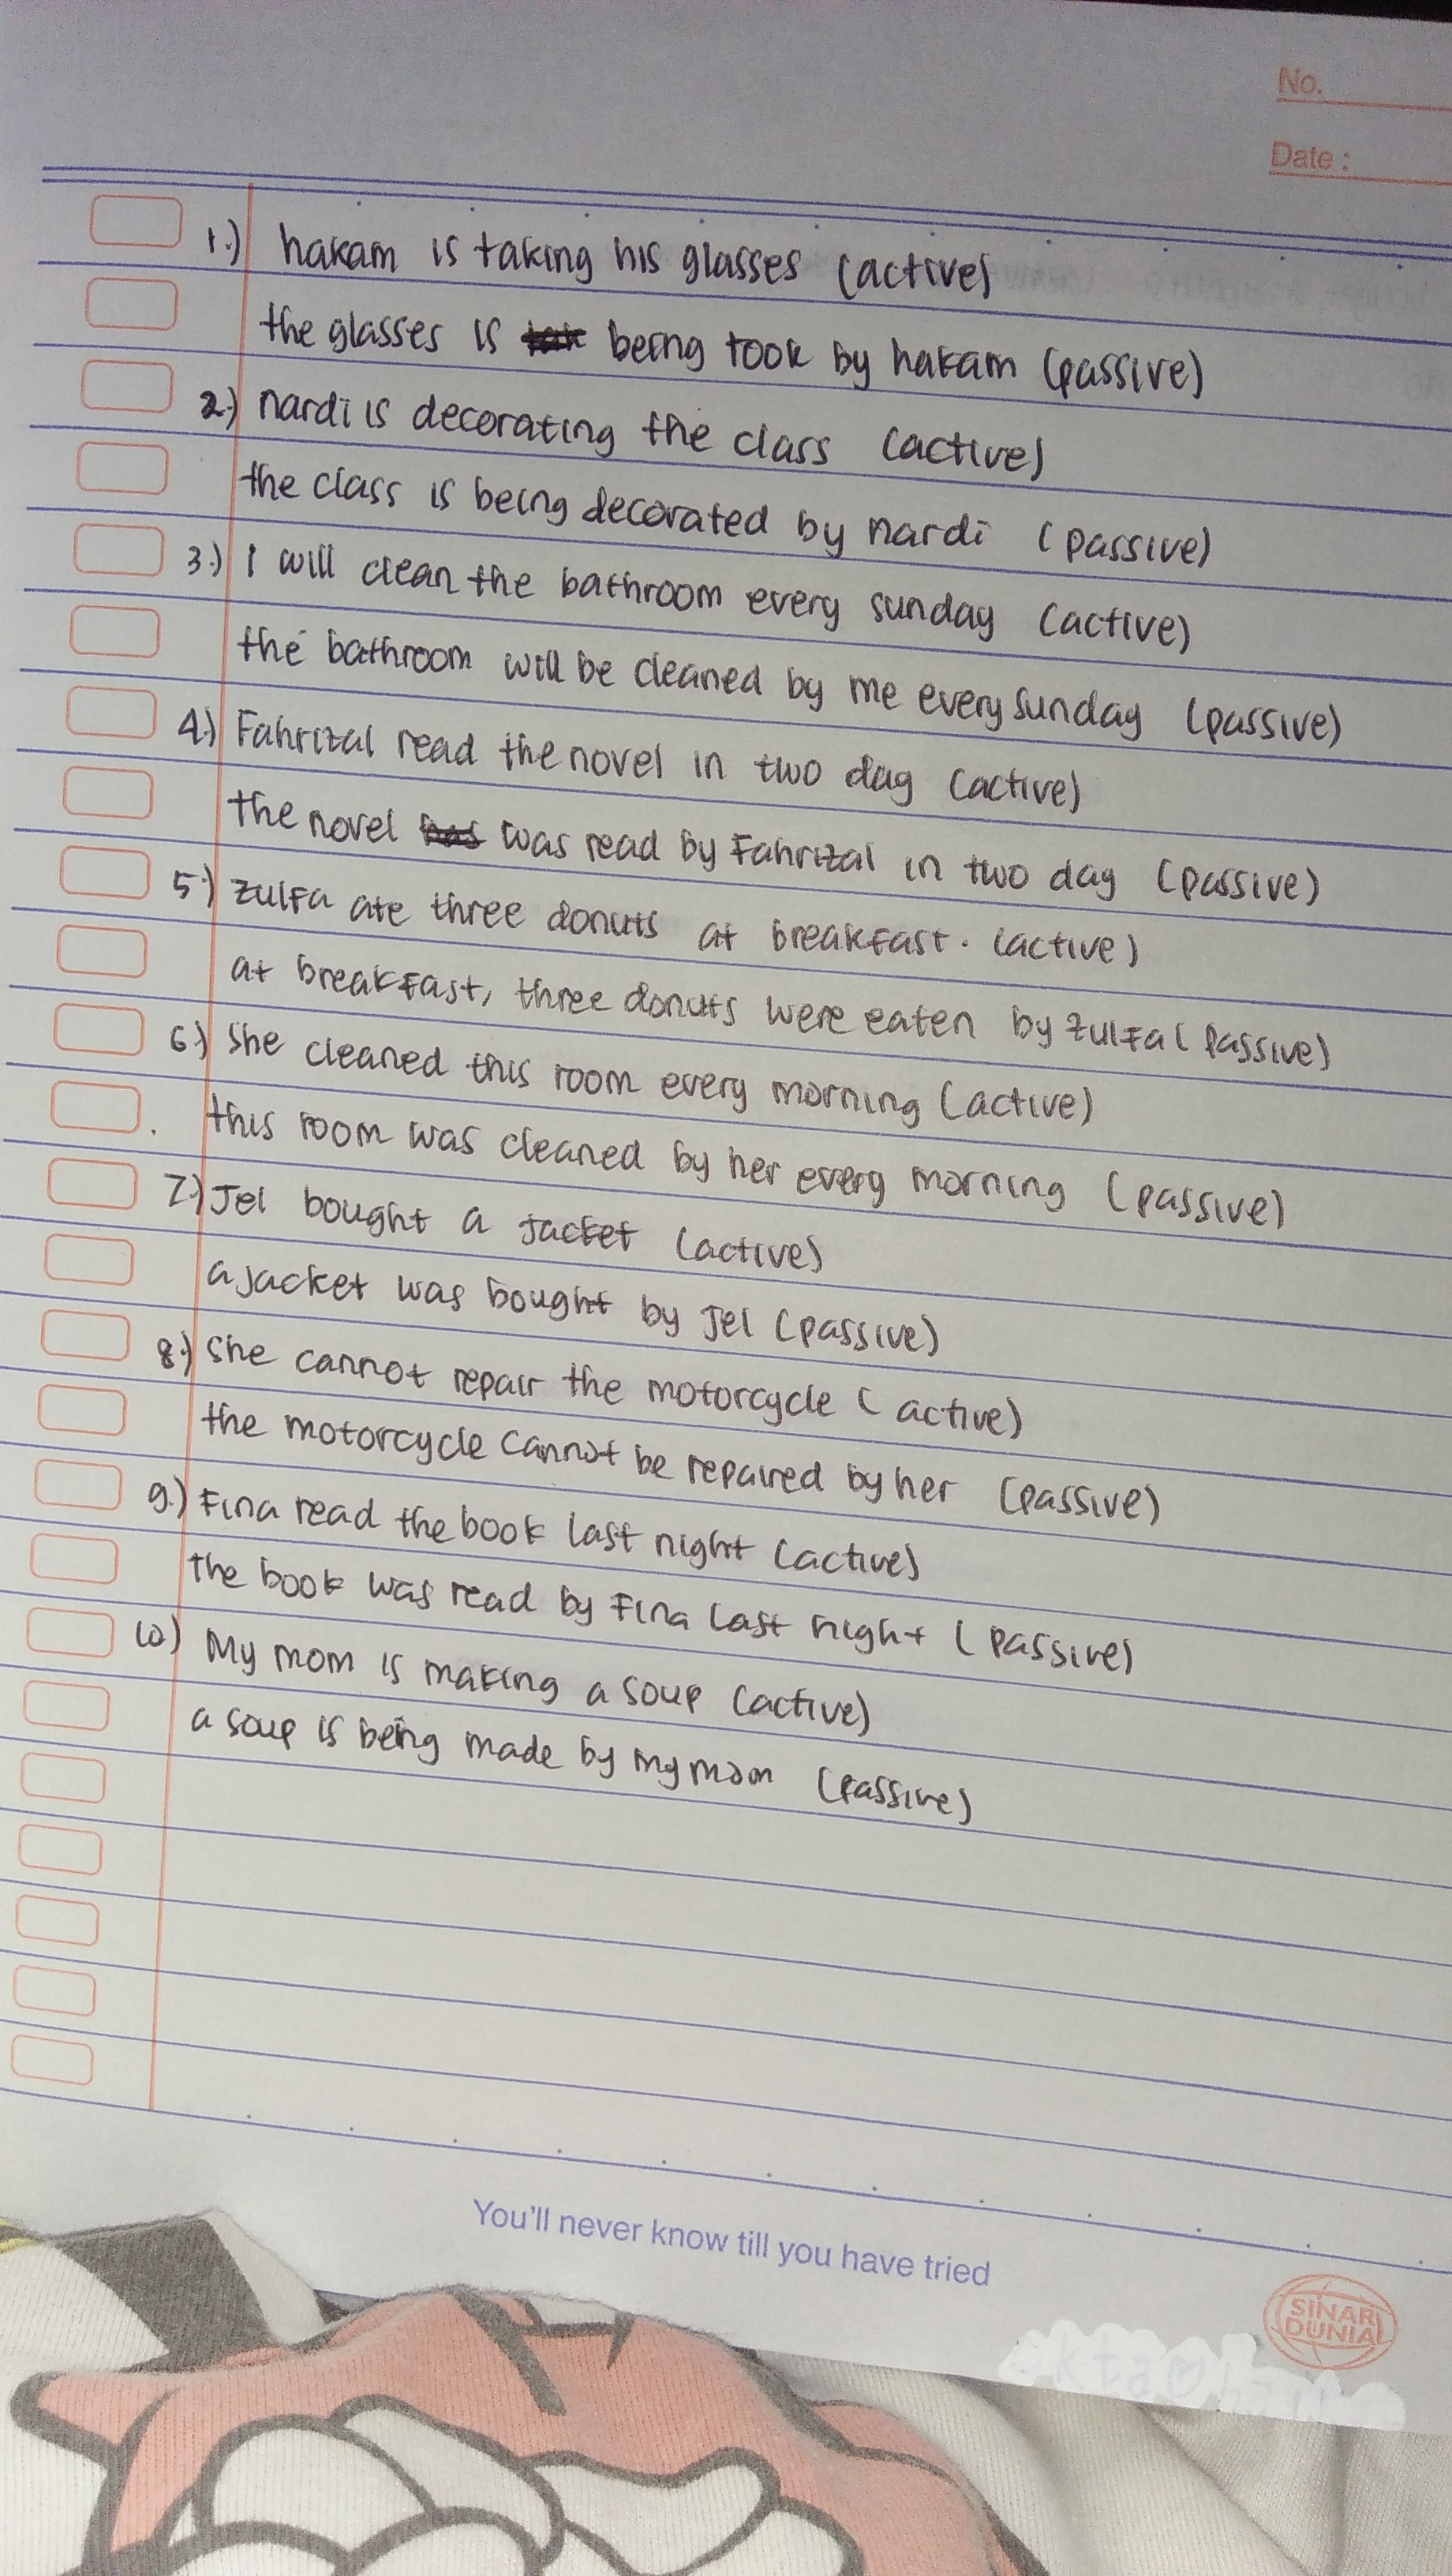 No.
Date :
1.) hakam is taking his glasses (active)
the glasses is being took by hakam (passive)
2.) Nardi is decorating the class (active)
the class is being decorated by Nardi (passive)
3.) I will clean the bathroom every sunday (active)
the bathroom will be cleaned by me every sunday (passive)
4.) Fahrizal read the novel in two day (active)
The novel has was read by Fahrizal in two day (passive)
5.) Zulfa ate three donuts at breakfast. (active)
at breakfast, three donuts were eaten by Zulfa (passive)
6.) She cleaned this room every morning (active)
this room was cleaned by her every morning (passive)
7.) Jel bought a jacket (active)
a jacket was bought by Jel (passive)
8.) She cannot repair the motorcycle (active)
the motorcycle cannot be repaired by her (passive)
9.) Fina read the book last night (active)
The book was read by Fina last night (passive)
10) My mom is making a soup (active)
a soup is being made by my mom (passive)
You'll never know till you have tried
SINAR
DUNIA